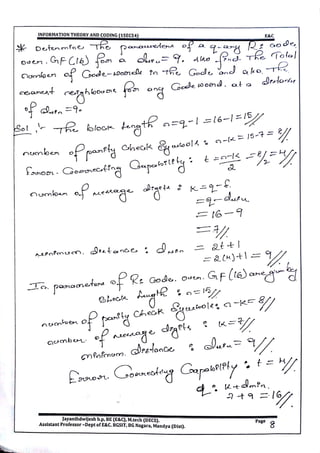 INFORMATION THEORY AND CODING (15EC54) E&C
* Determine The parameters of a q-ary RS code
over GF(16) for a dmin = 9. Also find The Total
number of Code-words in The Code and also The
nearest neighbours for any Code word at a distance
of dmin = 9.
Sol :- The block length n = q-1 = 16-1 = 15//
number of parity check symbols : n-k = 15-7 = 8//
Error Correcting Capability : t = n-k/2 = 8/2 = 4//
number of message digits : k = q-
= q-dmin
= 16-9
= 7//
minimum distance : dmin = 2t+1
= 2(4)+1 = 9//
parameters of RS Code over GF(16) are given by
Block length : n = 15//
number of parity check symbols : n-k = 8//
number of message digits : k = 7//
minimum distance : dmin = 9//
Error Correcting Capability : t = 4//
q : k+dmin
7+9 = 16//
Jayanthdwijesh h.p, BE (E&C), M.tech (DECS).
Assistant Professor –Dept of E&C. BGSIT, BG Nagara, Mandya (Dist).
Page 8